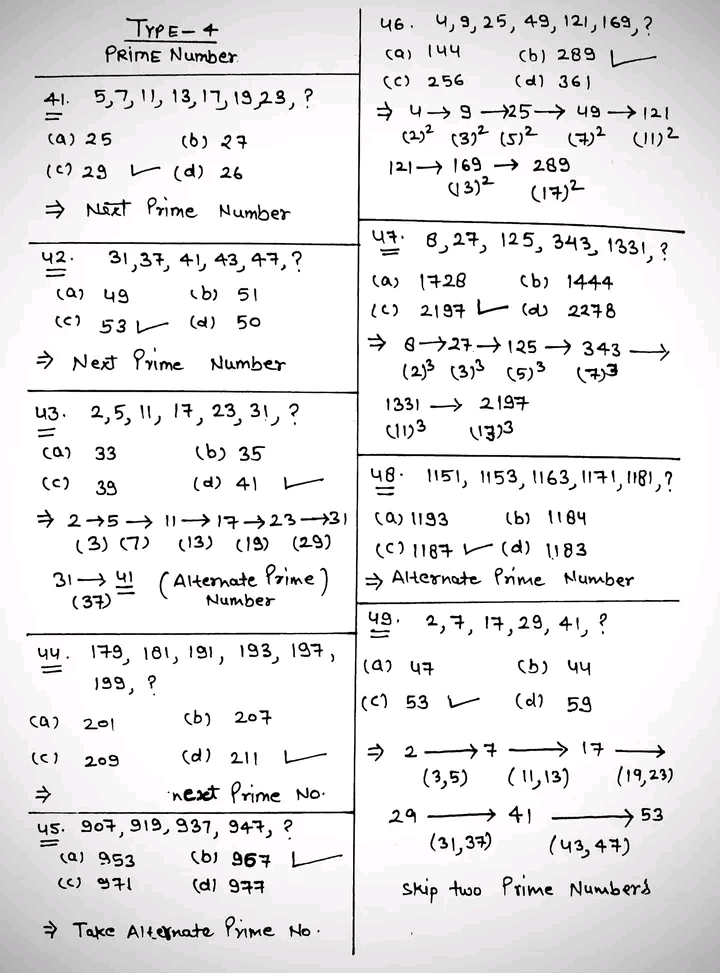 TYPE-4
PRIME Number
41. 5,7,11, 13,17,19,23, ?
(a) 25 (b) 27
(c) 29 ✓ (d) 26
⇒ Next Prime Number
42. 31,37, 41, 43, 47, ?
(a) 49 (b) 51
(c) 53 ✓ (d) 50
⇒ Next Prime Number
43. 2,5, 11, 17, 23, 31, ?
(a) 33 (b) 35
(c) 39 (d) 41 ✓
⇒ 2→5→ 11→17→23→31
(3) (7) (13) (19) (29)
31→41 (Alternate Prime)
(37) Number
44. 179, 181, 191, 193, 197,
199, ?
(a) 201 (b) 207
(c) 209 (d) 211 ✓
⇒ next Prime No.
45. 907, 919, 937, 947, ?
(a) 953 (b) 967 ✓
(c) 971 (d) 977
⇒ Take Alternate Prime No.
46. 4,9,25, 49, 121, 169, ?
(a) 144 (b) 289 ✓
(c) 256 (d) 361
⇒ 4→9→25→ 49→121
(2)² (3)² (5)² (7)² (11)²
121→169→ 289
(13)² (17)²
47. 8,27, 125, 343, 1331, ?
(a) 1728 (b) 1444
(c) 2197 ✓ (d) 2278
⇒ 8→27→125→ 343→
(2)³ (3)³ (5)³ (7)³
1331→ 2197
(11)³ (13)³
48. 1151, 1153, 1163, 1171, 1181, ?
(a) 1193 (b) 1184
(c) 1187 ✓ (d) 1183
⇒ Alternate Prime Number
49. 2,7, 17, 29, 41, ?
(a) 47 (b) 44
(c) 53 ✓ (d) 59
⇒ 2→7→17→
(3,5) (11,13) (19,23)
29→41→53
(31,37) (43,47)
Skip two Prime Numbers